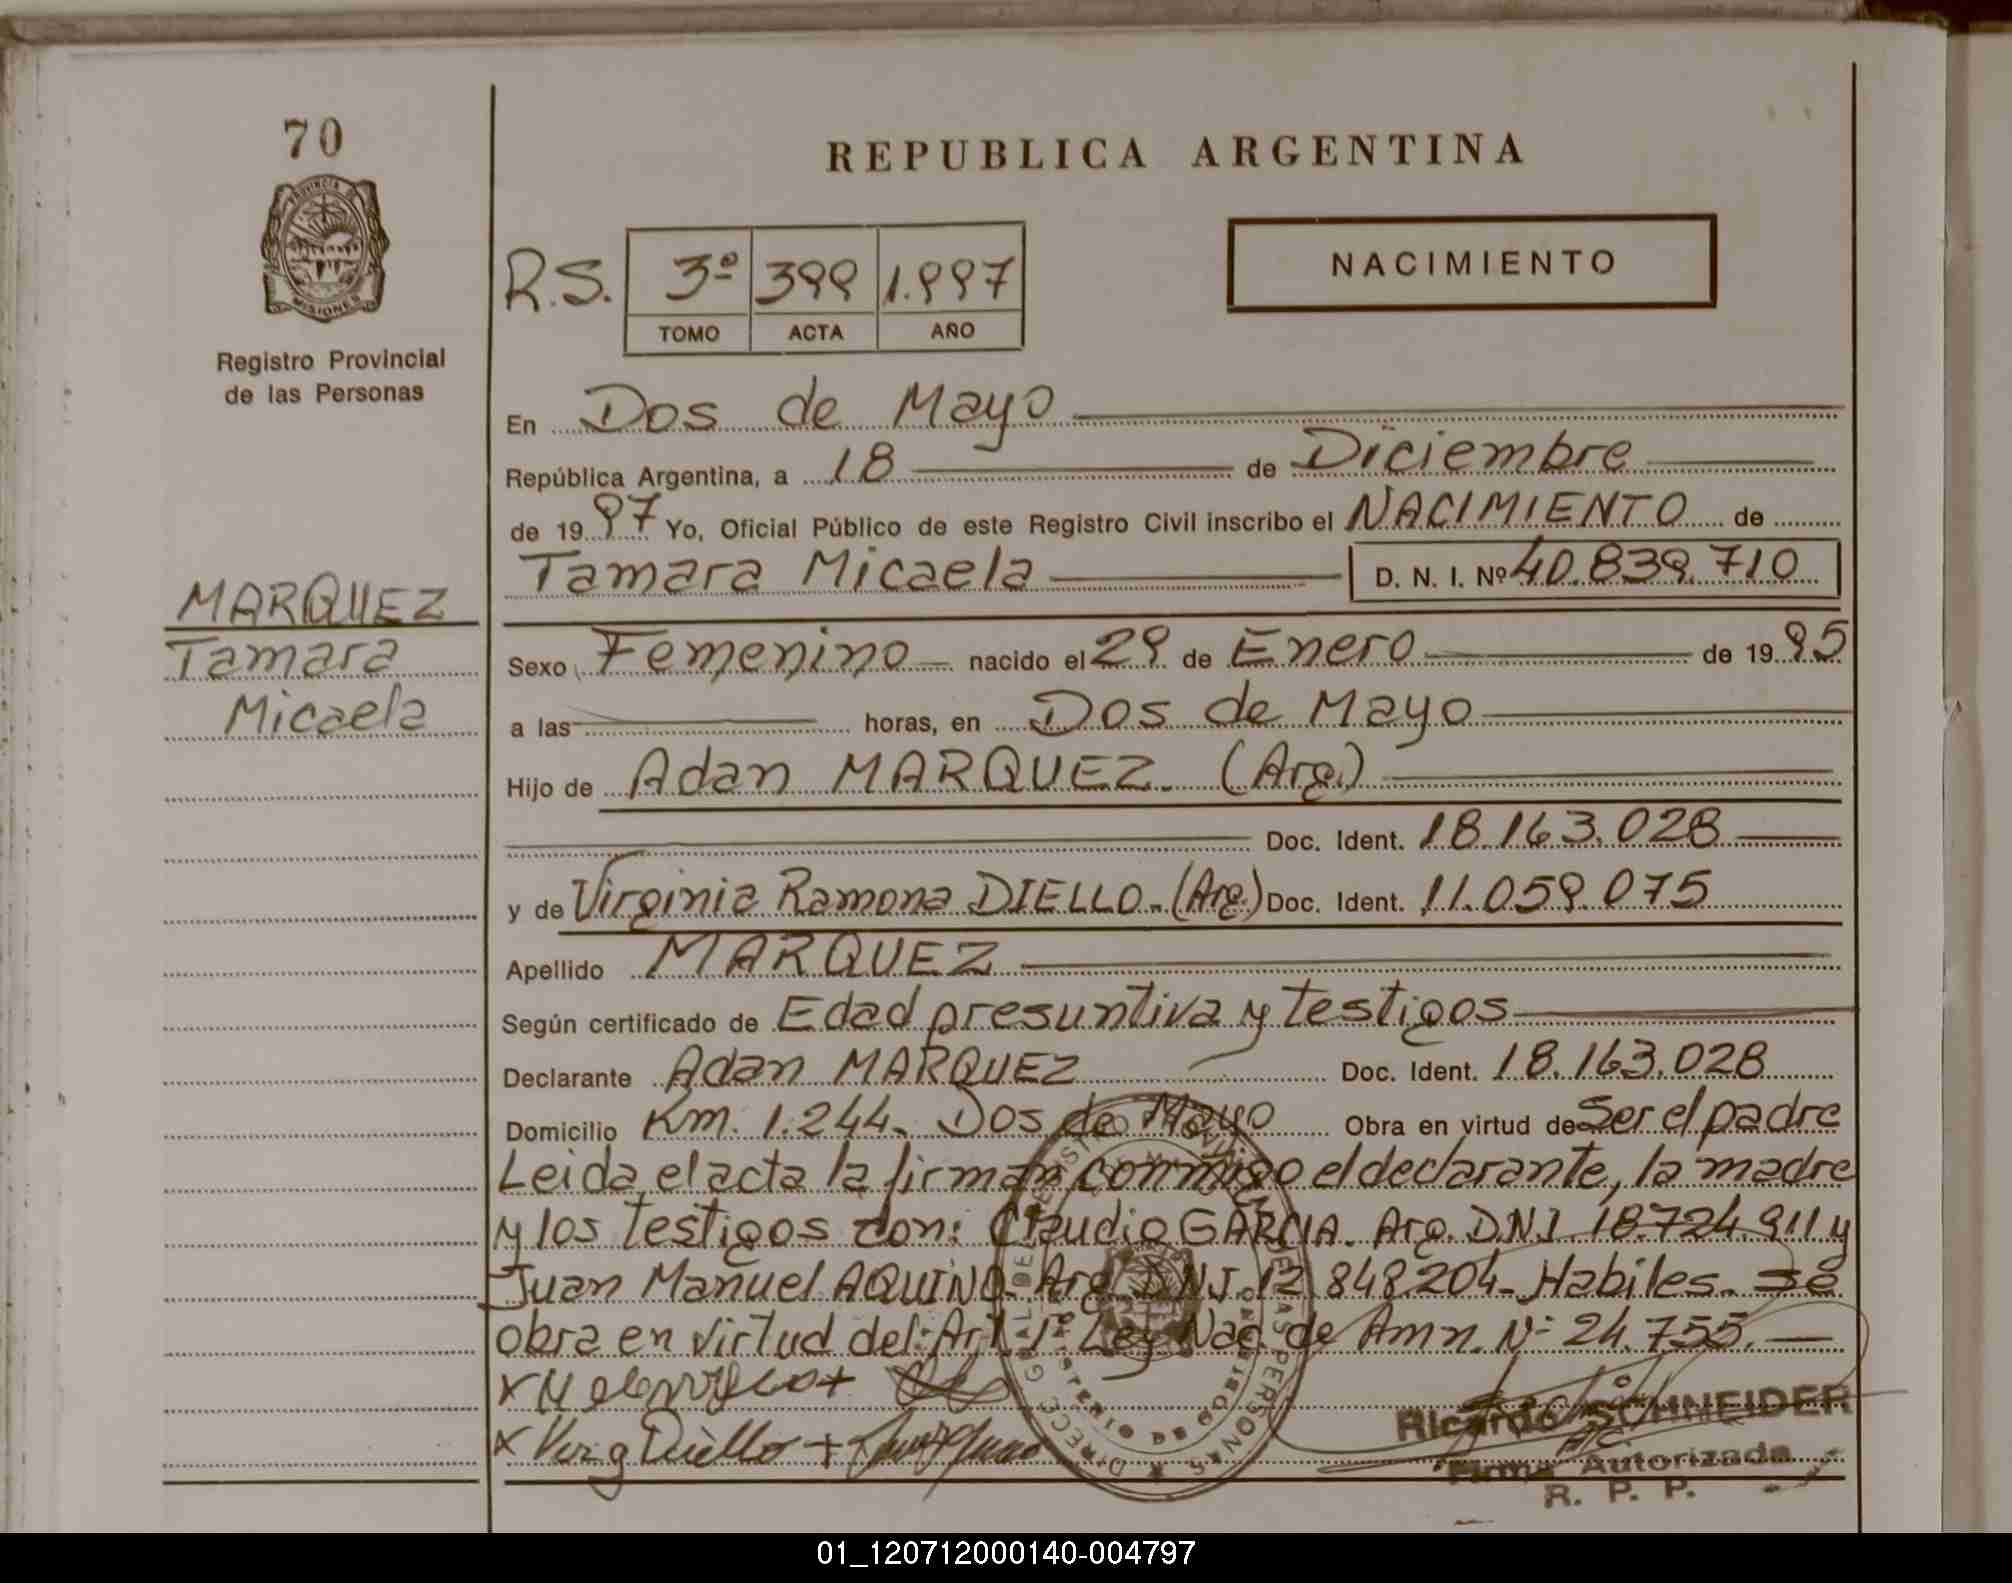 70
REPUBLICA ARGENTINA
PROVINCIA DE
MISIONES
Registro Provincial
de las Personas
NACIMIENTO
R.S. 3º 399 1.997
TOMO ACTA AÑO
En Dos de Mayo
República Argentina, a 18 de Diciembre
de 1997 Yo, Oficial Público de este Registro Civil inscribo el NACIMIENTO de
Tamara Micaela D. N. I. Nº 40.839.710
MARQUEZ
Tamara
Micaela
Sexo Femenino nacido el 29 de Enero de 1995
a las horas, en Dos de Mayo
Hijo de Adan MARQUEZ. (Arg.)
Doc. Ident. 18.163.028
y de Virginia Ramona DIELLO.-(Arg.) Doc. Ident. 11.059.075
Apellido MARQUEZ
Según certificado de Edad presuntiva y testigos
Declarante Adan MARQUEZ Doc. Ident. 18.163.028
Domicilio Km. 1.244.- Dos de Mayo Obra en virtud de Ser el padre
Leida el acta la firman conmigo el declarante, la madre
y los testigos don: Claudio GARCIA. Arg. D.N.I. 18.724.911 y
Juan Manuel AQUINO Arg. D.N.I. 12.848.204- Habiles.- se
obra en virtud del: Art. 1º Ley Nac. de Amn. Nº 24.755.-
x
+
x Virg Diello +
Ricardo SCHNEIDER
A/C
Firma Autorizada
R. P. P.
MINISTERIO DE GOBIERNO
01_120712000140-004797